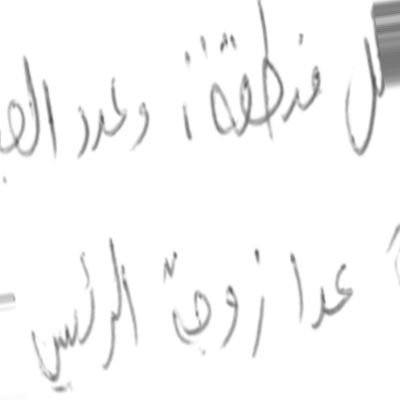 كل منطقة، وعدد
عدا زوجة الرئيس